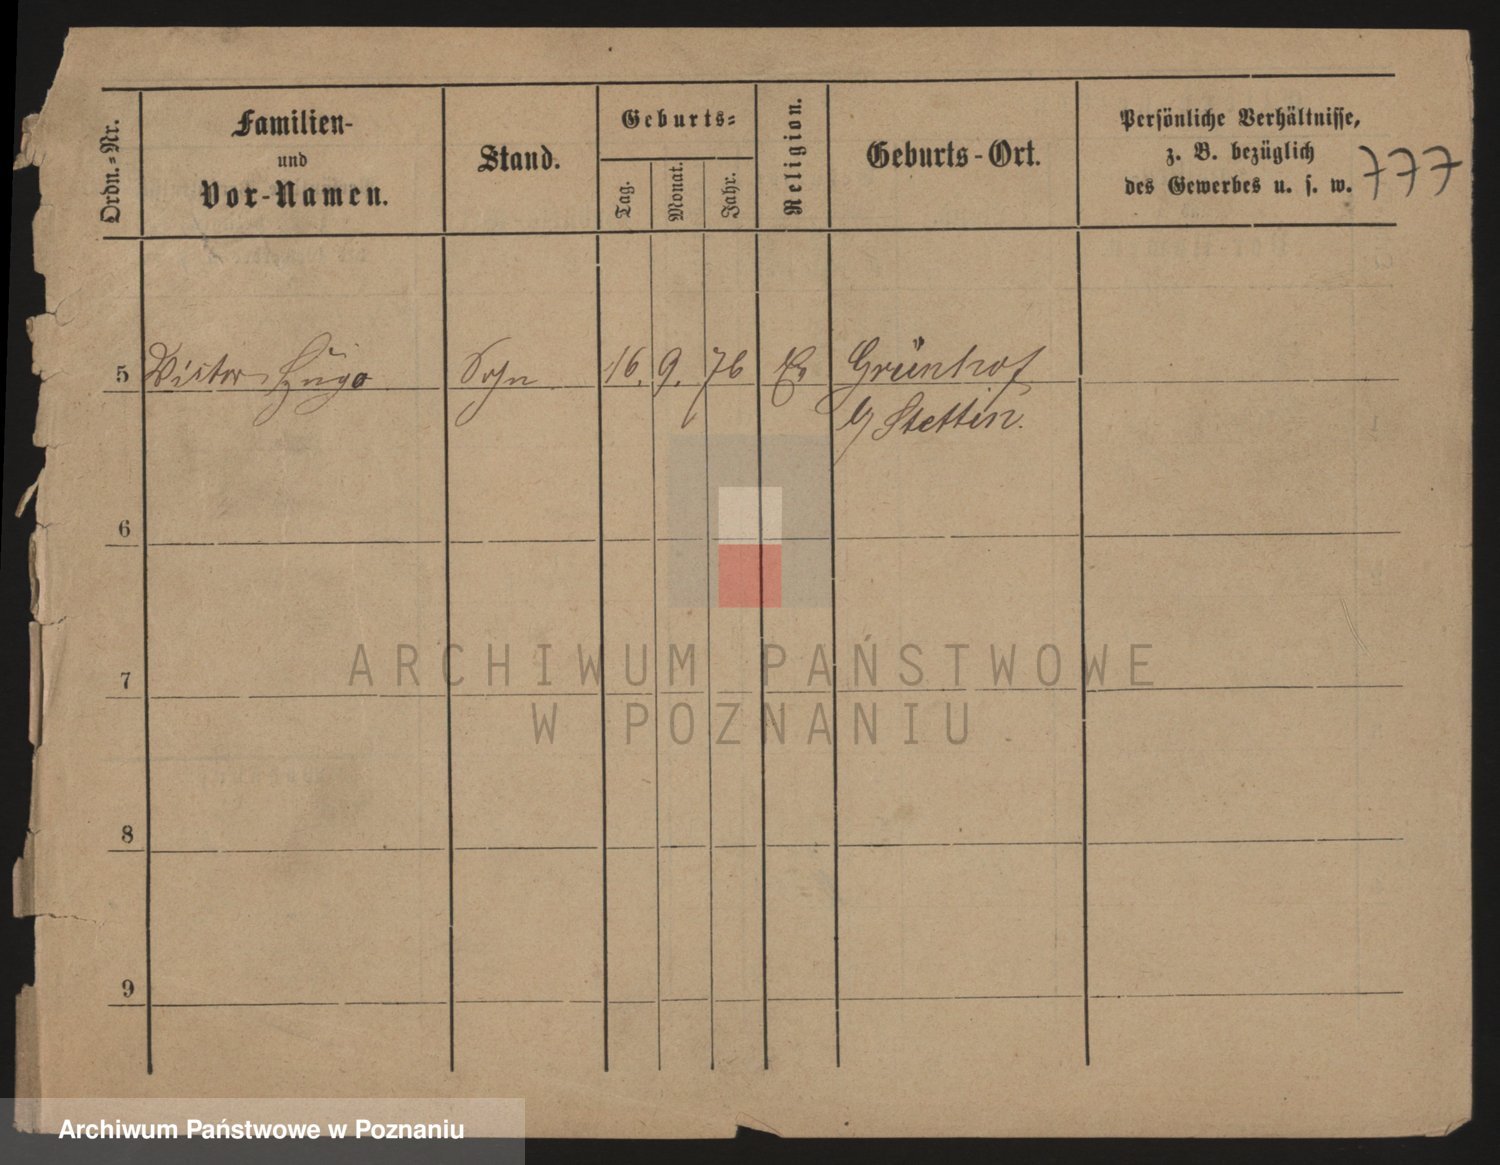 Ordn.-Nr.
Familien-
und
Vor-Namen.
Stand.
Geburts-
Tag.
Monat.
Jahr.
Religion.
Geburts-Ort.
Persönliche Verhältnisse,
z. B. bezüglich
des Gewerbes u. s. w.
777
5 Victor Hugo Sohn 16. 9. 76 Ev Grünhof
b/ Stettin.
6
7
8
9
ARCHIWUM PAŃSTWOWE
W POZNANIU
Archiwum Państwowe w Poznaniu